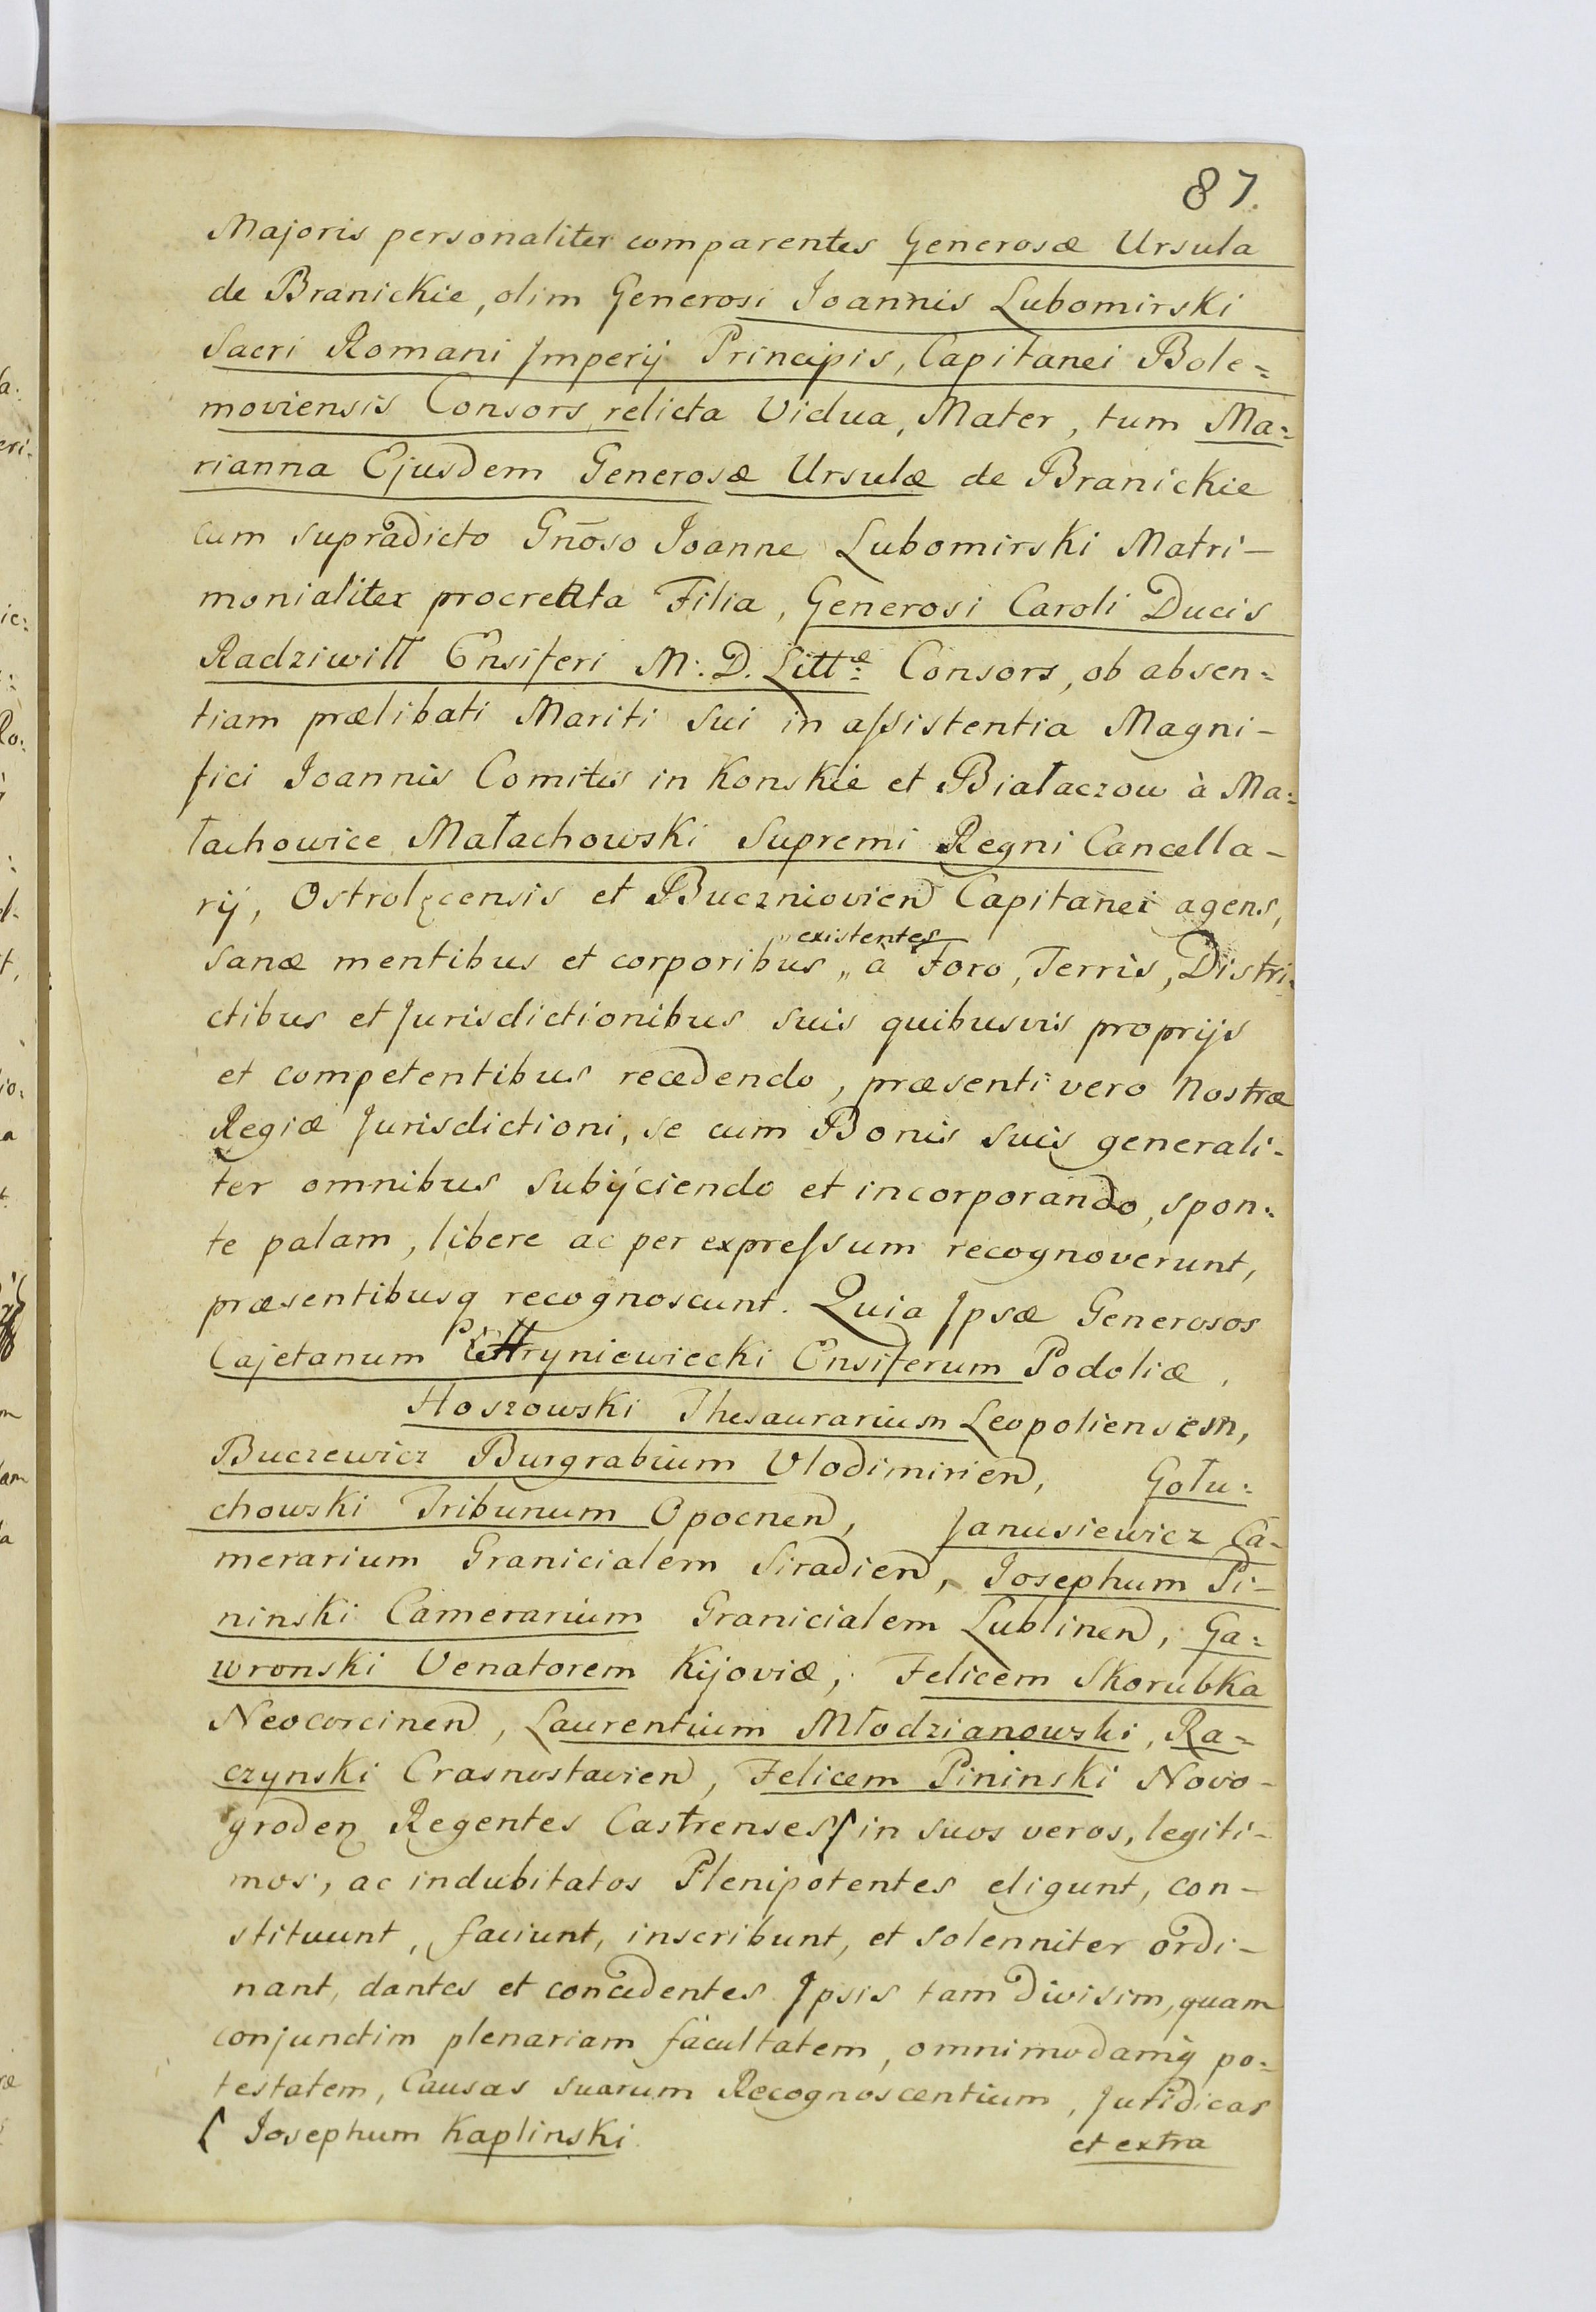 87.
Majoris personaliter comparentes Generosæ Ursula
de Branickie, olim Generosi Joannis Lubomirski
Sacri Romani Imperij Principis, Capitanei Bole=
moviensis Consors relicta Vidua, Mater, tum Ma=
rianna Ejusdem Generosæ Ursulæ de Branickie
cum supradicto Gñoso Joanne Lubomirski Matri-
monialiter procreata Filia, Generosi Caroli Ducis
Radziwiłł Ensiferi M: D. Littæ Consors, ob absen=
tiam prælibati Mariti sui in assistentia Magni-
fici Joannis Comitis in Konskie et Białaczow à Ma=
łachowice Małachowski Supremi Regni Cancella-
rij, Ostrolęcensis et Buczniovien Capitanei agens,
existentes
sanæ mentibus et corporibus „ à Foro, Terris, Distri=
ctibus et Jurisdictionibus suis quibusvis proprijs
et competentibus recedendo, præsenti vero Nostræ
Regiæ Jurisdictioni, se cum Bonis suis generali=
ter omnibus subijciendo et incorporando, spon=
te palam, libere ac per expressum recognoverunt,
præsentibusq recognoscunt. Quia Ipsæ Generosos
Cajetanum Hryniewiecki Ensiferum Podoliæ,
Hoszowski Thesaurarium Leopoliensem,
Buczewicz Burgrabium Vlodimirien, Gołu=
chowski Tribunum Opocnen, Janusiewicz Ca-
merarium Granicialem Siradien, Josephum Pi-
ninski Camerarium Granicialem Lublinen, Ga=
wronski Venatorem Kijoviæ, Felicem Skorubka
Neocorcinen, Laurentium Młodzianowski, Ra=
czynski Crasnostavien, Felicem Pininski Novo-
groden Regentes Castrenses ſ in suos veros, legiti-
mos, ac indubitatos Plenipotentes eligunt, con-
stituunt, faciunt, inscribunt, et solenniter ordi-
nant, dantes et concedentes Ipsis tam divisim, quam
conjunctim plenariam facultatem, omnimodamq po=
testatem, Causas suarum Recognoscentium, Juridicas
ſ Josephum Kaplinski
et extra